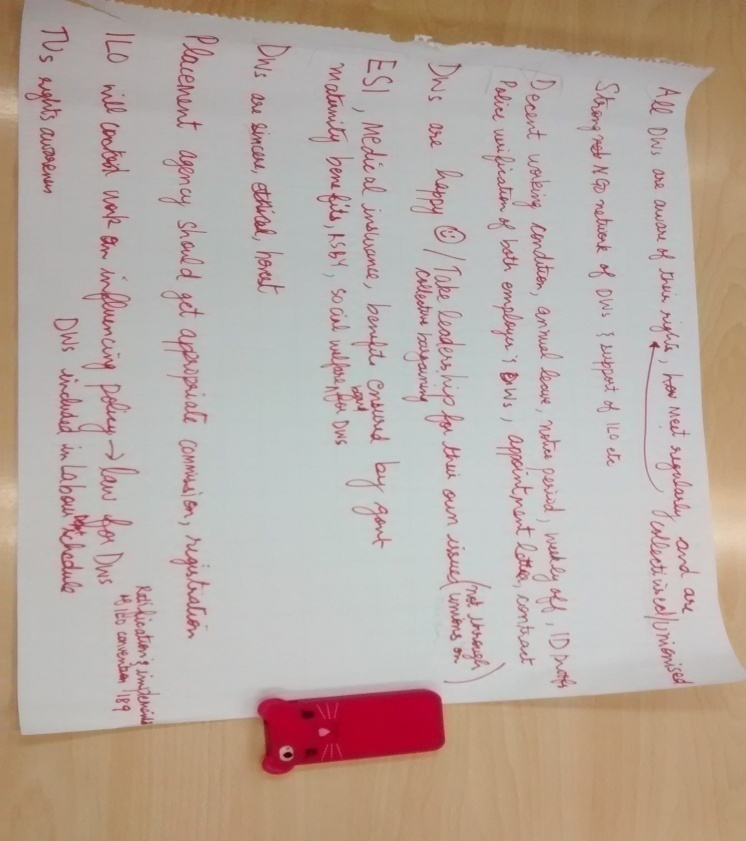 All DWs are aware of their rights, how meet regularly and are
collectivized/Unionised
Strong NGO network of DWs & support of ILO etc
Decent working condition, annual leave, notice period, weekly off, ID proofs
Police verification of both employer & DWs, appointment letter, contract
DWs are happy ☺ / Take leadership for their own issues (not through
collective bargaining unions only)
ESI, Medical insurance, benefits ensured by govt
maternity benefits, RSBY, social welfare board for DWs
DWs are sincere, ethical, honest
Placement agency should get appropriate commission, registration
ILO will work on influencing policy → law for DWs
Ratification & implemen
of ILO convention 189
DWs included in Labour Dept schedule
TUs rights awareness